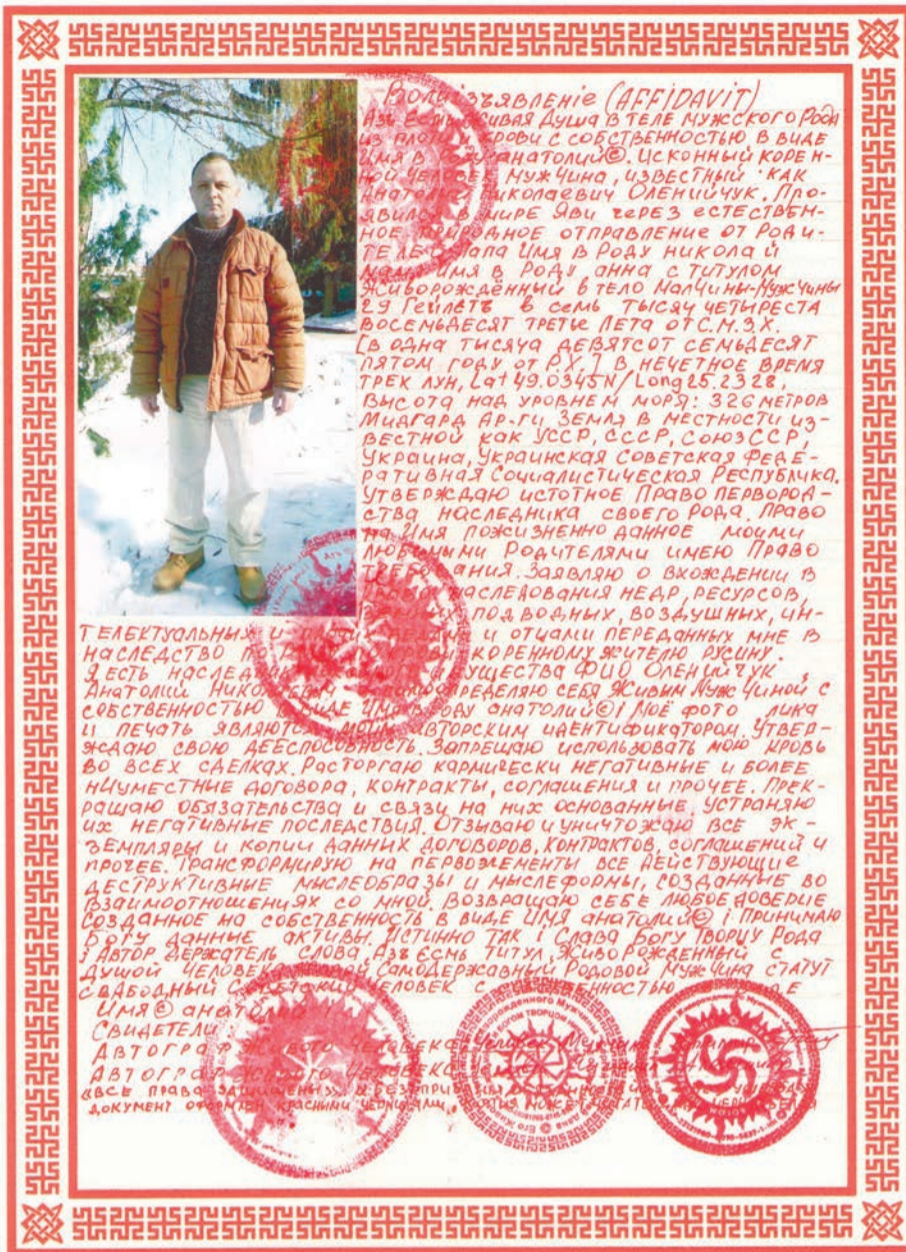 Волиізъявленіе (AFFIDAVIT)
Азъ Есмь Живая Душа в теле мужского Рода
из плоти крови с собственностью в виде
Имя в Роду анатолий©. Исконный корен-
ной Человек Мужчина, известный как
Анатолий Николаевич Оленийчук. Про-
явился в мире Яви через естествен-
ное природное отправление от Роди-
телей папа Имя в Роду николай
мама Имя в Роду анна с титулом
Живорождённый в тело Малчины-Мужчины
29 Гейлетъ в семь тысяч четыреста
восемьдесят третье Лета от С.М.З.Х.
[в одна тысяча девятсот семьдесят
пятом году от Р.Х.] в нечетное время
трех лун, Lat 49.0345N/Long 25.2328,
высота над уровнем моря: 326 метров
Мидгард Ар-ги Земля в местности из-
вестной как УССР, СССР, Союз ССР,
Украина, Украинская Советская Феде-
ративная Социалистическая Республика.
Утверждаю истотное Право первород-
ства наследника своего Рода. Право
на Имя пожизненно данное моими
любимыми Родителями имею Право
требования. Заявляю о вхождении в
наследования недр, ресурсов,
подводных, воздушных, ин-
телектуальных и дедами и отцами переданных мне в
наследство коренному жителю русину.
Я есть наследник имущества ФИО Оленийчук
Анатолий Николаевич самоопределяю себя Живым Мужчиной с
собственностью в виде Имя в Роду анатолий© i Моё фото лика
и печать являются моим авторским идентификатором. Утвер-
ждаю свою дееспособность. Запрещаю использовать мою кровь
во всех сделках. Расторгаю кармически негативные и более
ниуместные договора, контракты, соглашения и прочее. Прек-
ращаю обязательства и связи на них основанные, устраняю
их негативные последствия. Отзываю и уничтожаю все эк-
земпляры и копии данных договоров, контрактов, соглашений и
прочее. Трансформирую на первоэлементы все действующие
деструктивные мыслеобразы и мыслеформы, созданные во
взаимоотношениях со мной. Возвращаю себе любое доверие
созданное на собственность в виде ИМЯ анатолий© i принимаю
Богу данные активы. Истинно так i Слава Богу Творцу Рода
i Автор держатель слова, Азъ Есмь титул, Живорожденный с
душой Человек Самодержавный Родовой Мужчина статут
Свабодный Человек с собственностью
Имя© анатолий
Свидетели:
Автограф Живого Человека
Автограф Живого Человека
«Все права защищены
документ оформлен красными чернилами,